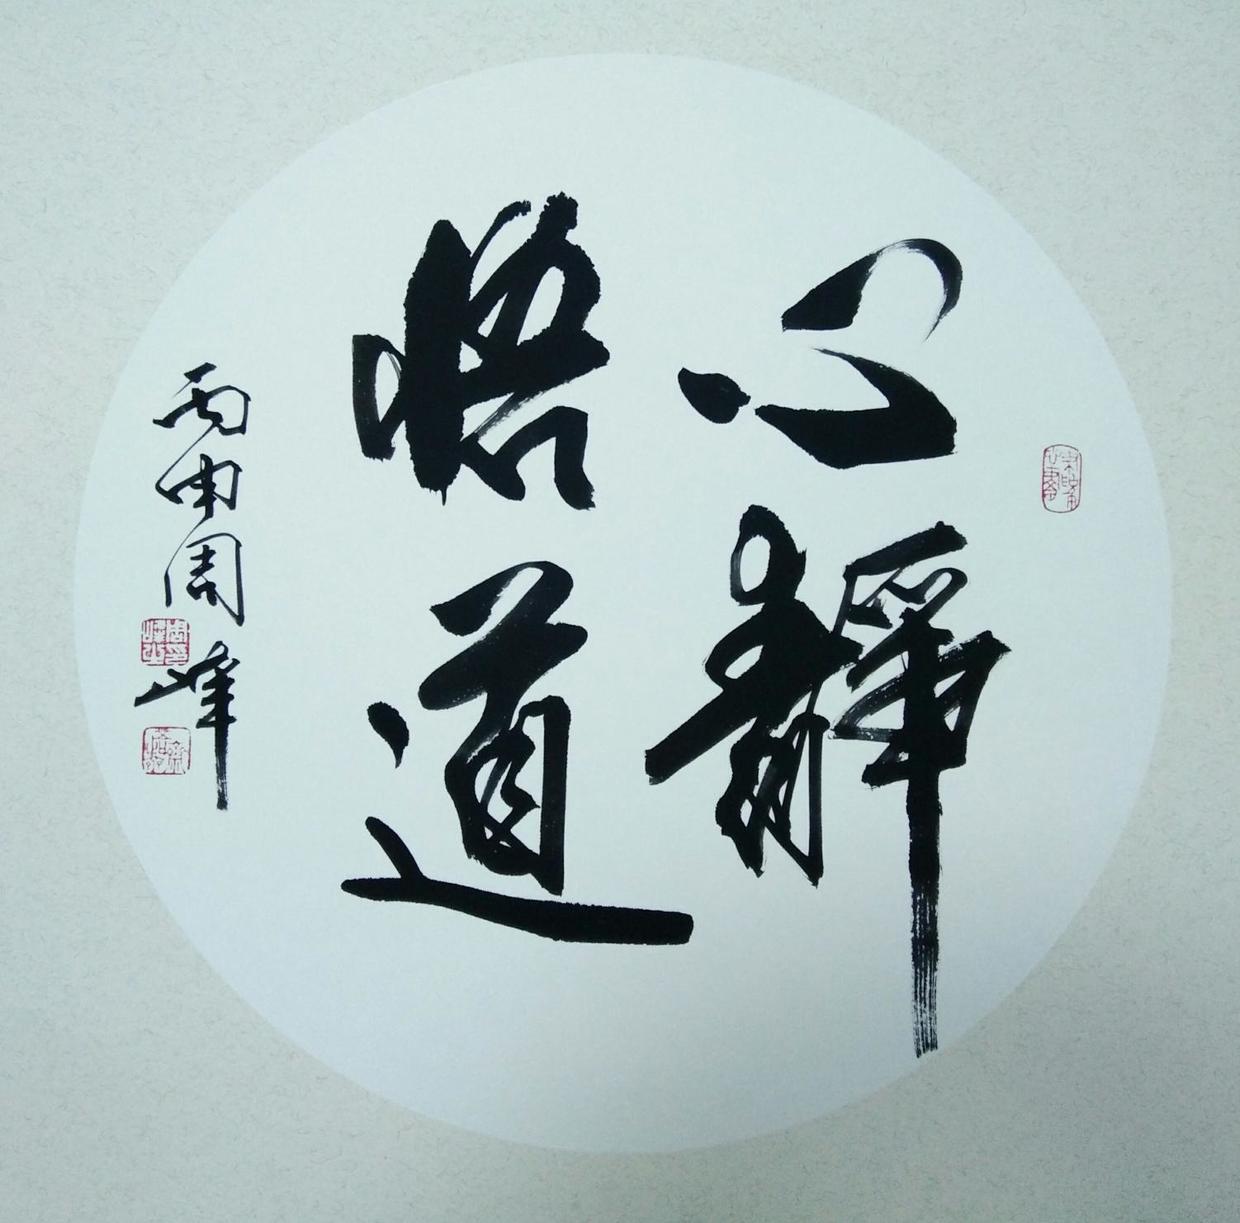 心靜
悟道
丙申周峰